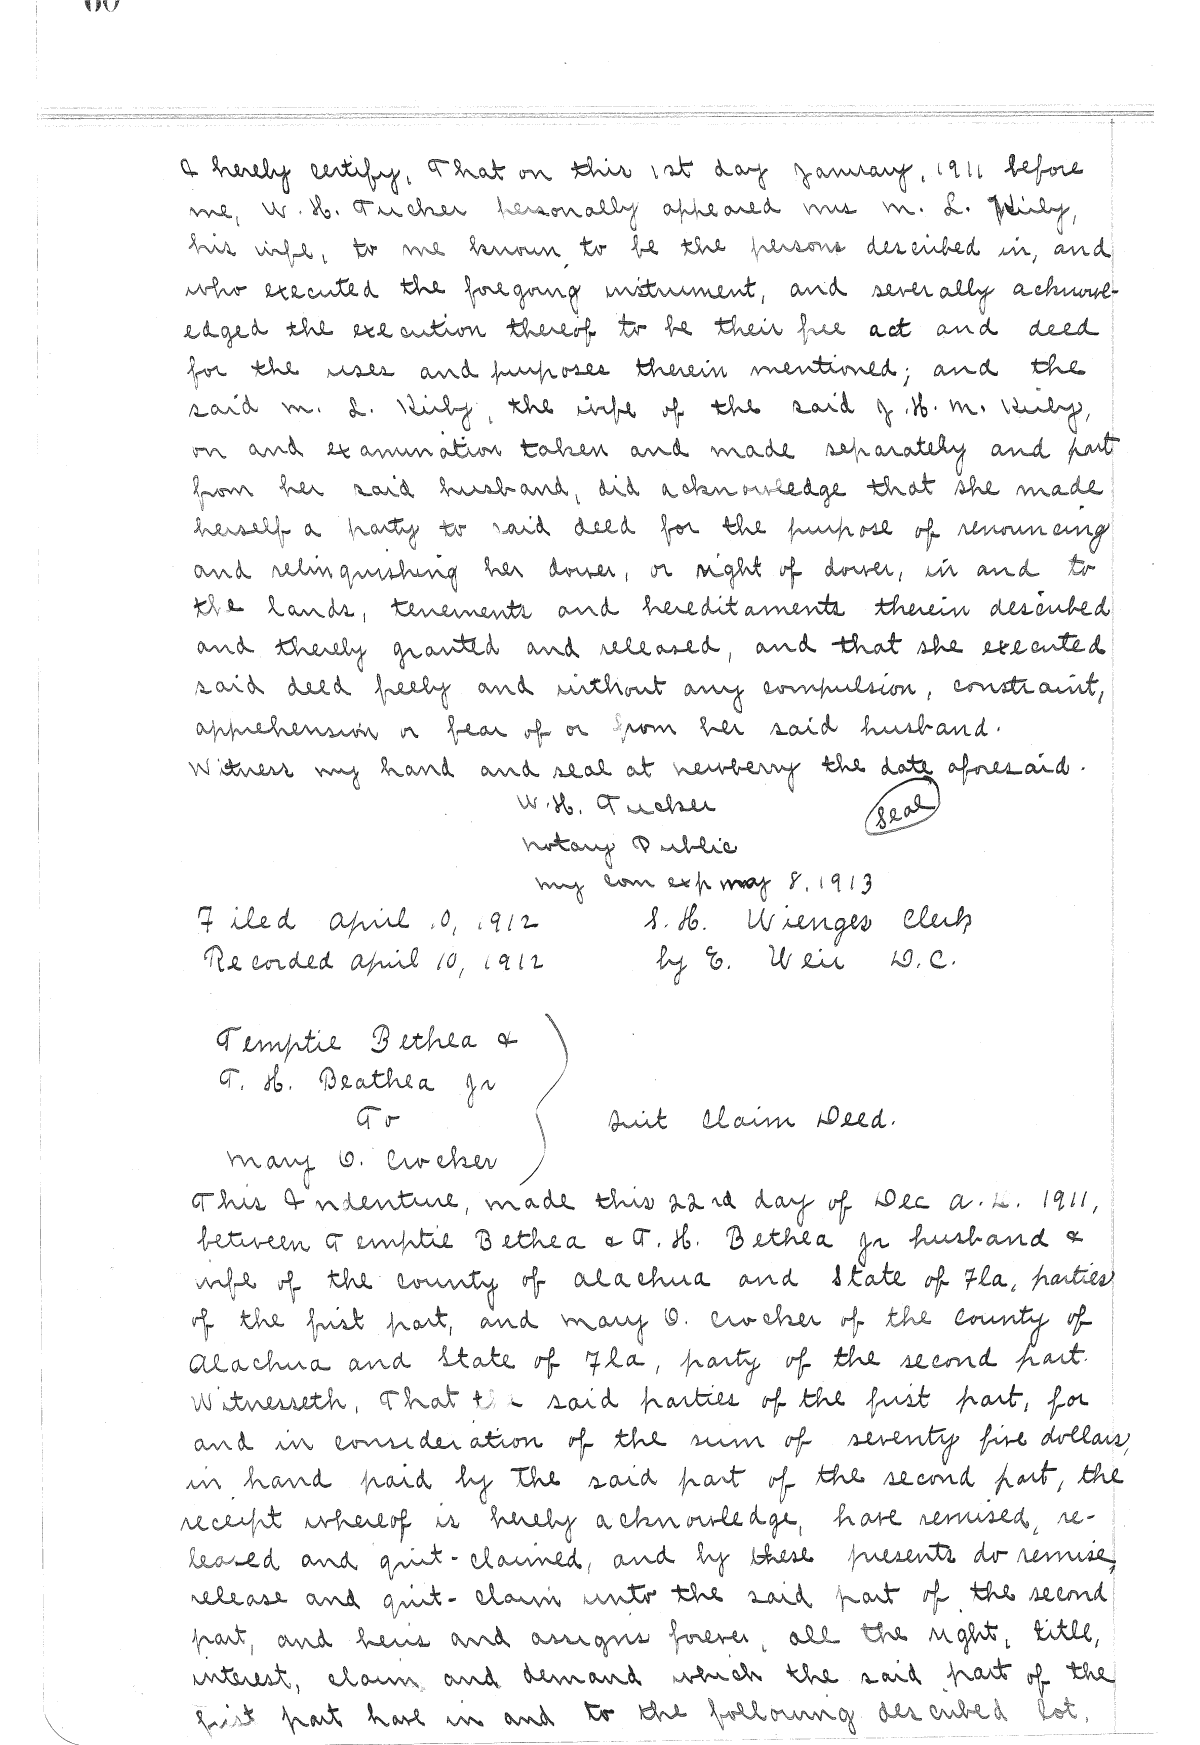 I hereby certify, That on this 1st day January, 1911 before
me, W. H. Tucker personally appeared mrs M. L. Kirby,
his wife, to me known to be the persons described in, and
who executed the foregoing instrument, and severally acknowl-
edged the execution thereof to be their free act and deed
for the uses and purposes therein mentioned; and the
said M. L. Kirby, the wife of the said J. H. M. Kirby,
on and examination taken and made separately and part
from her said husband, did acknowledge that she made
herself a party to said deed for the purpose of renouncing
and relinquishing her dower, or right of dower, in and to
the lands, tenements and hereditaments therein described
and thereby granted and released, and that she executed
said deed freely and without any compulsion, constraint,
apprehension or fear of or from her said husband.
Witness my hand and seal at Newberry the date aforesaid.
W. H. Tucker Seal
Notary Public
my com exp may 8, 1913
Filed April 10, 1912 S. H. Wienges Clerk
Recorded April 10, 1912 by E. Weir D.C.
Temptie Bethea &
T. H. Beathea Jr
To Quit Claim Deed.
Mary O. Crocker
This Indenture, made this 22nd day of Dec A.D. 1911,
between Temptie Bethea & T. H. Bethea Jr husband &
wife of the county of Alachua and State of Fla, parties
of the first part, and Mary O. Crocker of the County of
Alachua and State of Fla, party of the second part.
Witnesseth, That the said parties of the first part, for
and in consideration of the sum of seventy five dollars,
in hand paid by The said part of the second part, the
receipt whereof is hereby acknowledge, have remised, re-
leased and quit-claimed, and by these presents do remise,
release and quit-claim unto the said part of the second
part, and heirs and assigns forever, all the right, title,
interest, claim and demand which the said part of the
first part have in and to the following described lot,